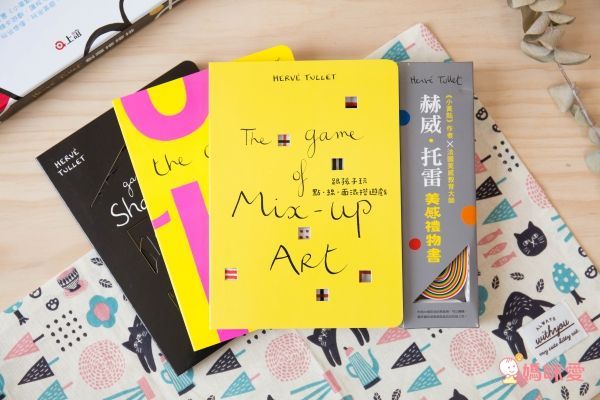 上誼
HERVÉ
TULLET
game
Sha
the
HERVÉ TULLET
The game
of
跟孩子玩
點・線・面混搭遊戲
Mix-up
Art
Hervé Tullet
《小黃點》作者
×法國美感教育大師
赫威・托雷
美感禮物書
ALWAYS
withyou
媽咪愛